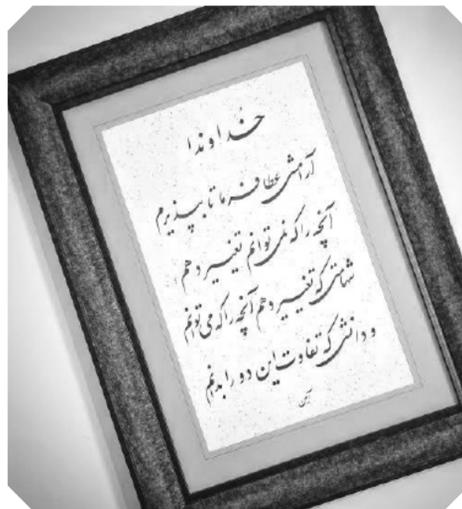 خداوندا
آرامشی عطا فرما تا بپذیرم
آنچه را که نمی توانم تغییر دهم
شهامتی که تغییر دهم آنچه را که می توانم
و دانشی که تفاوت این دو را بدانم
آمین